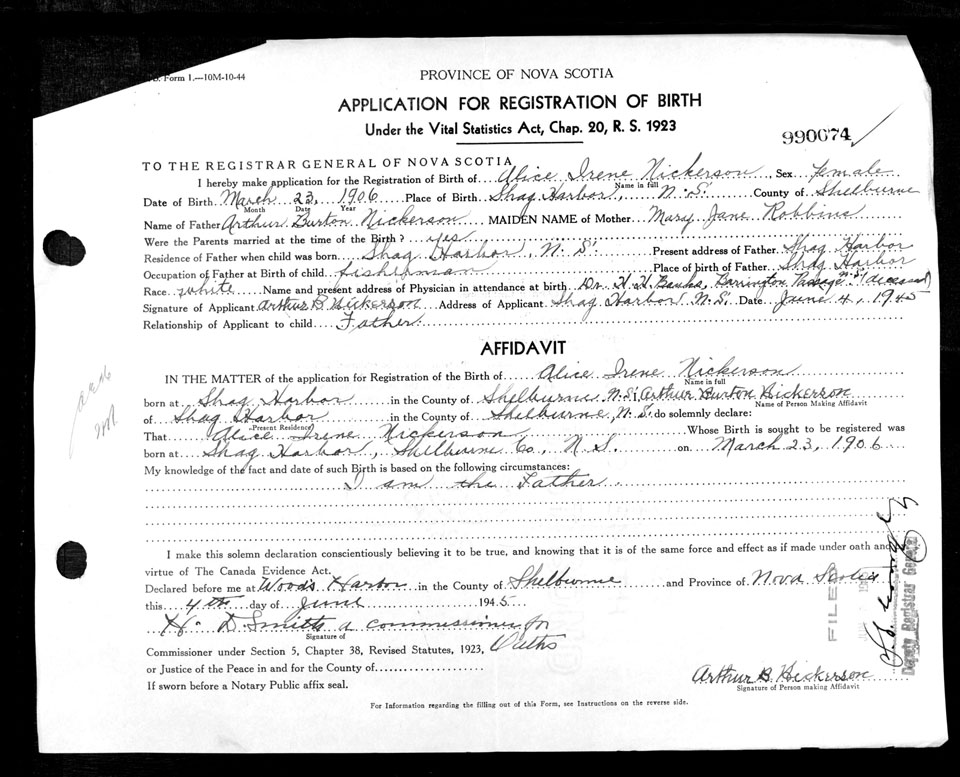 Form 1.—10M-10-44
PROVINCE OF NOVA SCOTIA
APPLICATION FOR REGISTRATION OF BIRTH
Under the Vital Statistics Act, Chap. 20, R. S. 1923
990674
TO THE REGISTRAR GENERAL OF NOVA SCOTIA
I hereby make application for the Registration of Birth of Alice Irene Nickerson Sex Female
Name in full
Date of Birth March 23, 1906 Place of Birth Shag Harbor, N.S. County of Shelburne
Month Date Year
Name of Father Arthur Burton Nickerson MAIDEN NAME of Mother Mary Jane Robbins
Were the Parents married at the time of the Birth? yes
Residence of Father when child was born Shag Harbor, N.S. Present address of Father Shag Harbor
Occupation of Father at Birth of child fisherman Place of birth of Father Shag Harbor
Race white Name and present address of Physician in attendance at birth Dr. H. H. Banks, Barrington Passage N.S. (deceased)
Signature of Applicant Arthur B Nickerson Address of Applicant Shag Harbor N.S. Date June 4, 1945
Relationship of Applicant to child Father
AFFIDAVIT
IN THE MATTER of the application for Registration of the Birth of Alice Irene Nickerson
Name in full
born at Shag Harbor in the County of Shelburne N.S. Arthur Burton Nickerson
Name of Person Making Affidavit
of Shag Harbor in the County of Shelburne, N.S. do solemnly declare:
(Present Residence)
That Alice Irene Nickerson Whose Birth is sought to be registered was
born at Shag Harbor, Shelburne Co., N.S. on March 23, 1906
My knowledge of the fact and date of such Birth is based on the following circumstances:
I am the Father.
I make this solemn declaration conscientiously believing it to be true, and knowing that it is of the same force and effect as if made under oath and
virtue of The Canada Evidence Act.
Declared before me at Woods Harbor in the County of Shelburne and Province of Nova Scotia
this 4th day of June 1945
H. D Smith a commissioner for
Signature of
Commissioner under Section 5, Chapter 38, Revised Statutes, 1923, Oaths
or Justice of the Peace in and for the County of
If sworn before a Notary Public affix seal.
Arthur B. Nickerson
Signature of Person making Affidavit
For Information regarding the filling out of this Form, see Instructions on the reverse side.
FILED
Deputy Registrar General